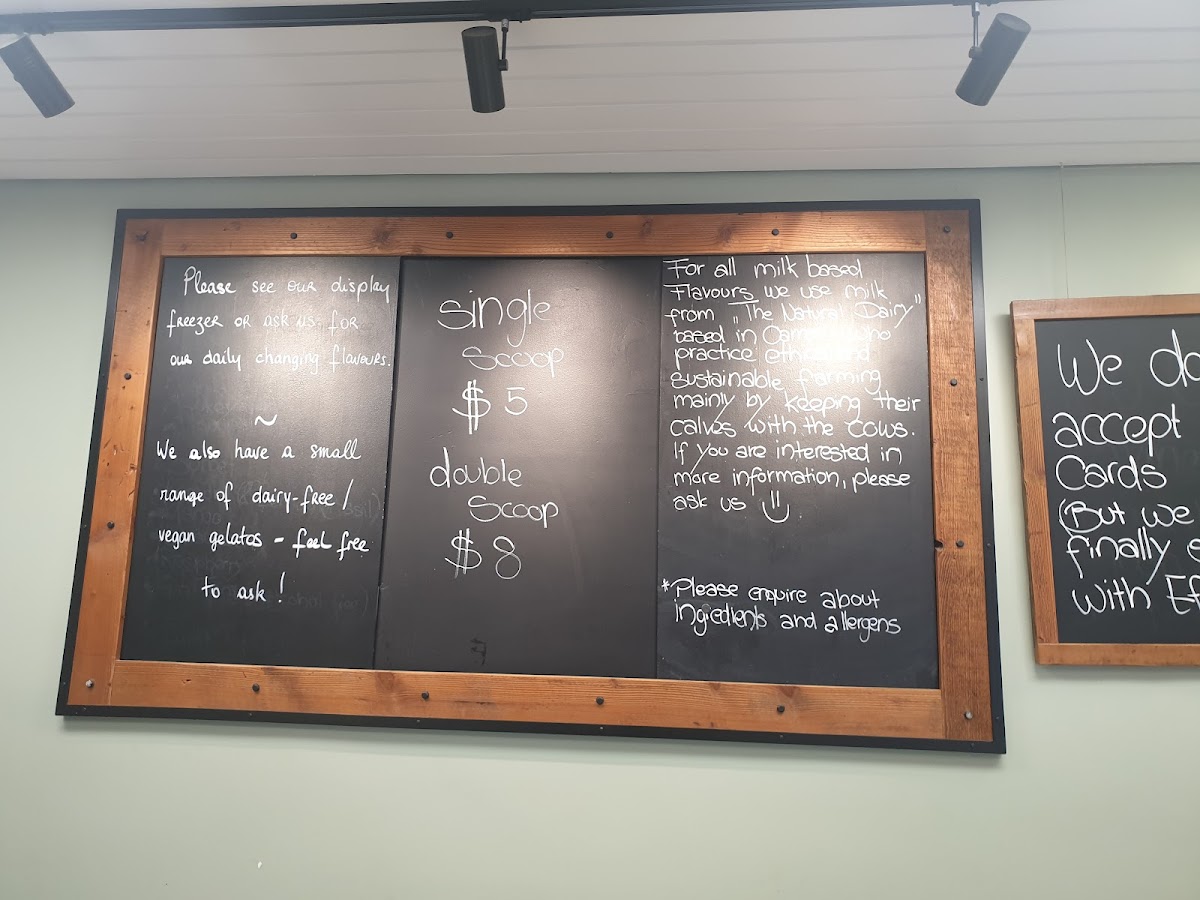 Please see our display
freezer or ask us for
our daily changing flavours.
~
We also have a small
range of dairy-free/
vegan gelatos - feel free
to ask!
single
scoop
$5
double
scoop
$8
For all milk based
flavours we use milk
from "The Natural Dairy"
based in who
practice ethical and
sustainable farming
mainly by keeping their
calves with the cows.
If you are interested in
more information, please
ask us
*Please enquire about
ingredients and allergens
We do
accept
Cards
(But we
finally
with